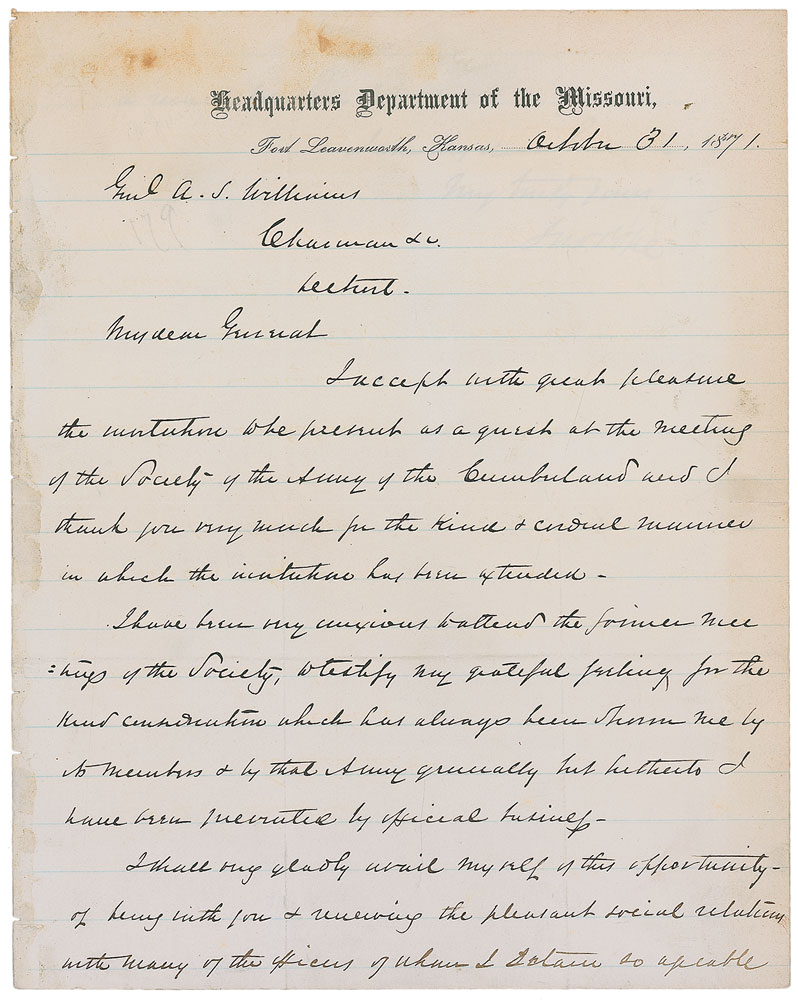 Headquarters Department of the Missouri,
Fort Leavenworth, Kansas, October 31, 1871.
Genl A. S. Williams
Chairman &c.
Detroit.
My dear General
I accept with great pleasure
the invitation to be present as a guest at the meeting
of the Society of the Army of the Cumberland and I
thank you very much for the kind & cordial manner
in which the invitation has been extended -
I have been very anxious to attend the former mee
=tings of the Society, to testify my grateful feeling for the
kind consideration which has always been shown me by
its members & by that Army generally but hitherto I
have been prevented by official business -
I shall very gladly avail myself of this opportunity -
of being with you & renewing the pleasant social relations
with many of the officers of whom I retain so agreable